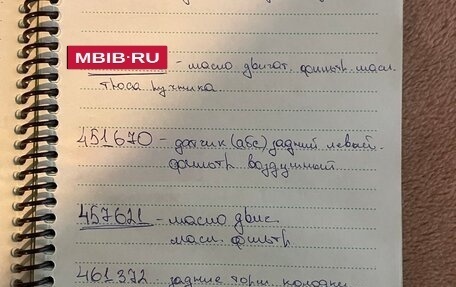 MBIB-RU
- масло двигат. фильтр. масл.
троса ручника
451670 - датчик (абс) задний левый.
фильтр воздушный
457621 - масло двиг.
масл. фильтр
461372 - задние торм. колодки